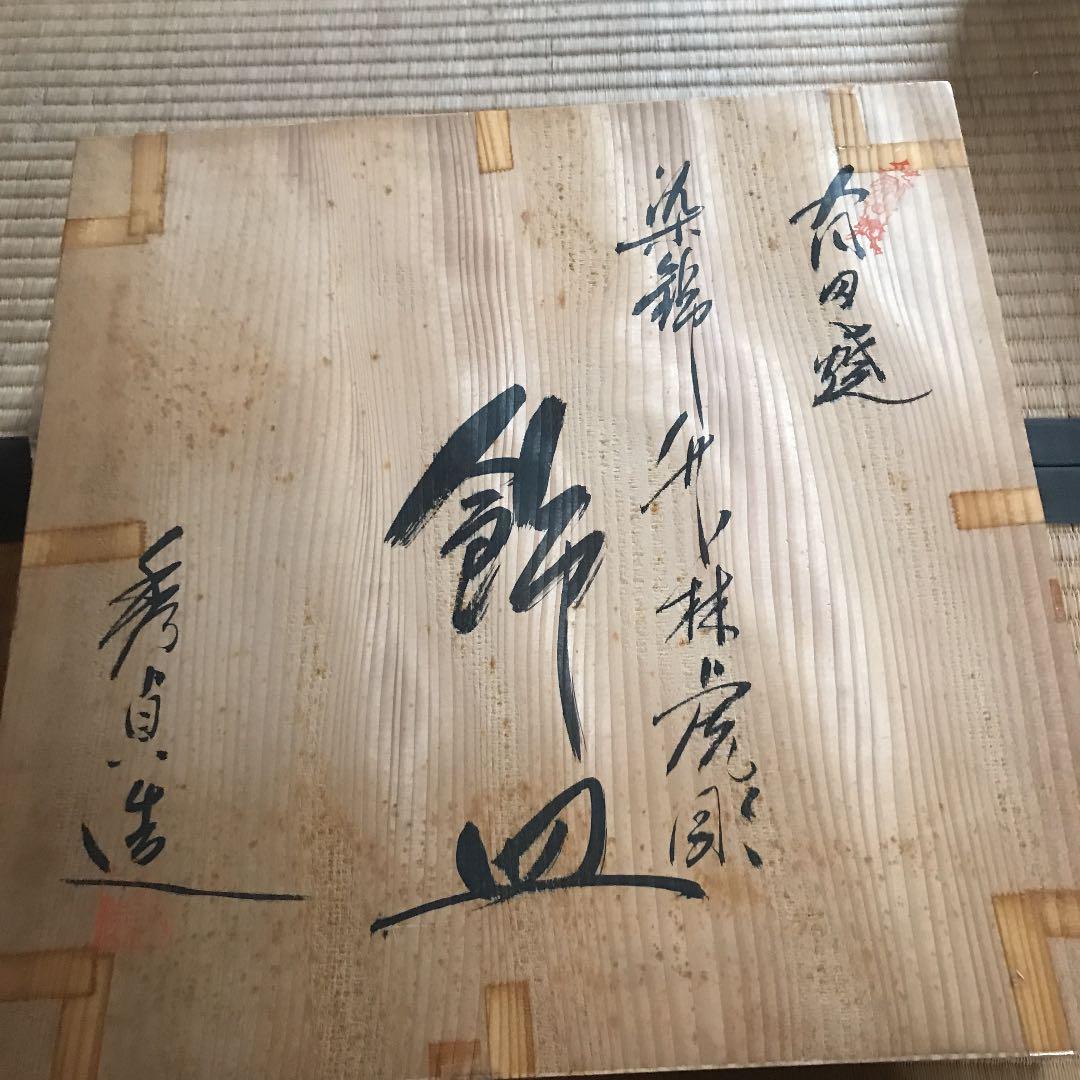 有田焼
染錦竹林虎彫
飾皿
秀貞造